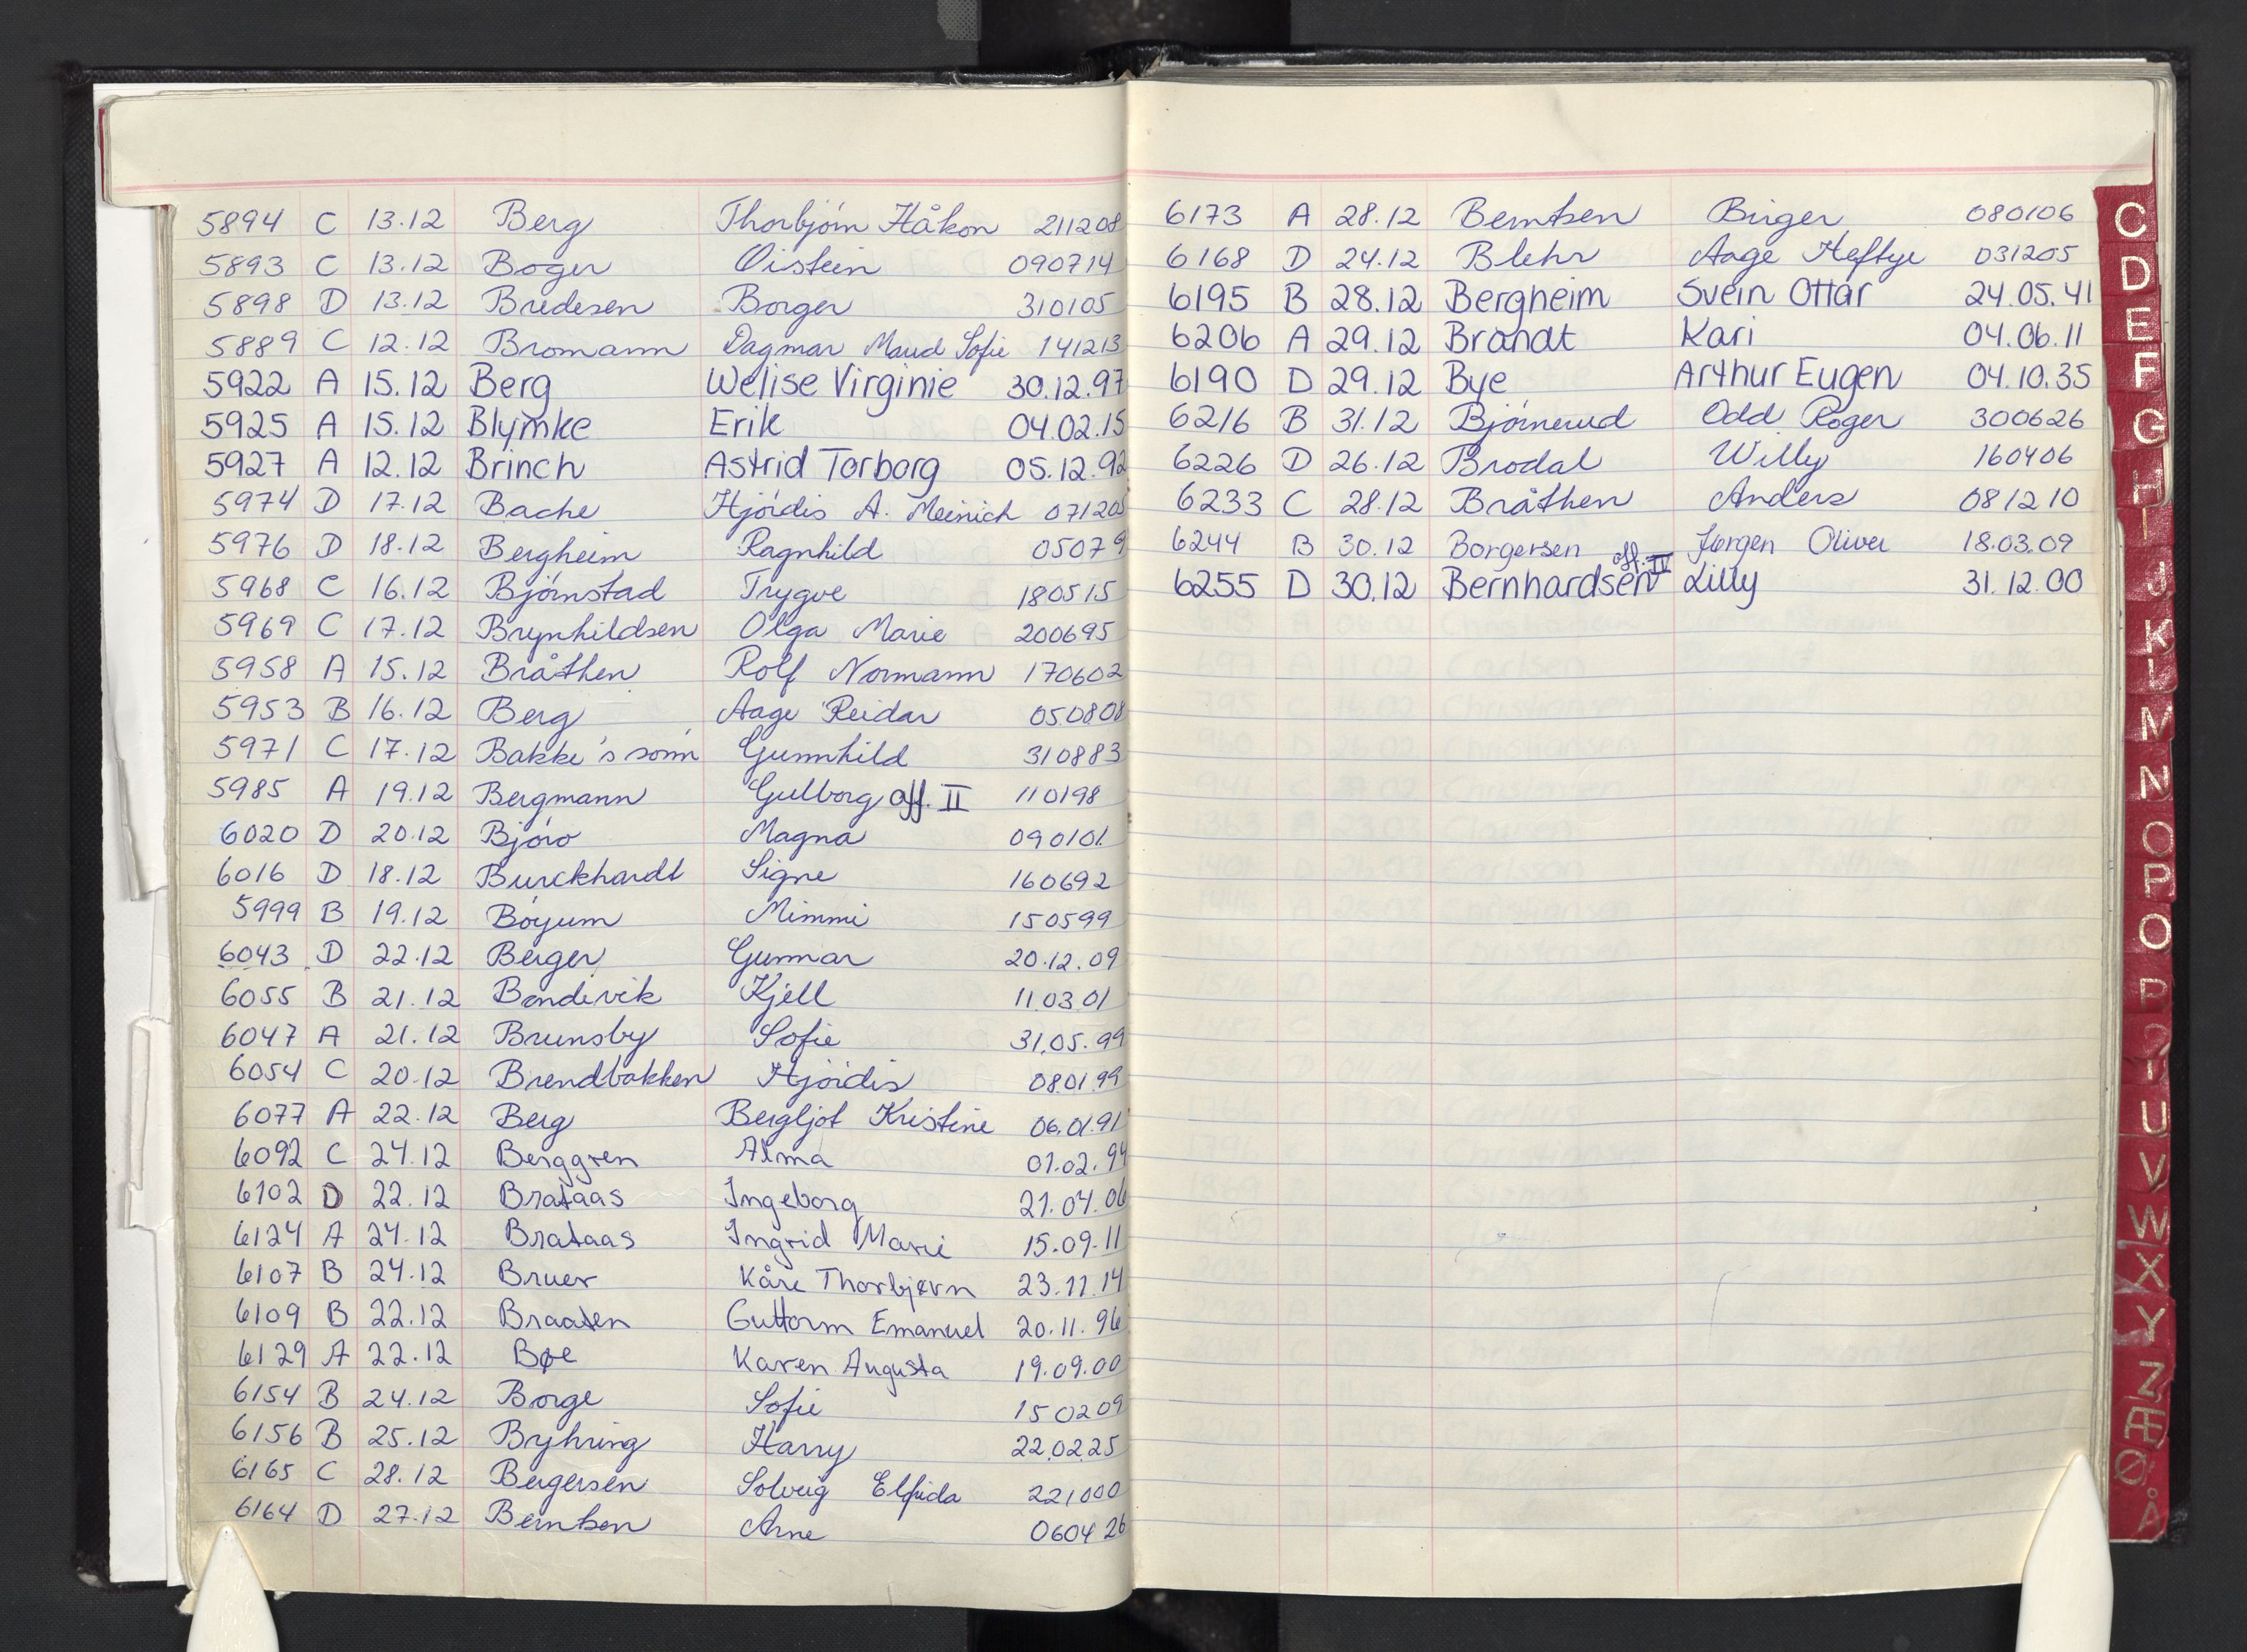 5894 C 13.12 Berg Thorbjørn Håkon 211208
5893 C 13.12 Boger Øistein 090714
5898 D 13.12 Bredesen Borger 310105
5889 C 12.12 Bromann Dagmar Maud Sofie 141213
5922 A 15.12 Berg Welise Virginie 30.12.97
5925 A 15.12 Blymke Erik 04.02.15
5927 A 12.12 Brinch Astrid Torborg 05.12.92
5974 D 17.12 Bache Hjørdis A. Meinich 071205
5976 D 18.12 Bergheim Ragnhild 05079
5968 C 16.12 Bjørnstad Trygve 180515
5969 C 17.12 Brynhildsen Olga Marie 200695
5958 A 15.12 Bråthen Rolf Normann 170602
5953 B 16.12 Berg Aage Reidar 050808
5971 C 17.12 Bakke's sønn Gunnhild 310883
5985 A 19.12 Bergmann Gulborg off. II 110198
6020 D 20.12 Bjøro Magna 090101
6016 D 18.12 Burckhardt Signe 160692
5999 B 19.12 Bøyum Mimmi 150599
6043 D 22.12 Berger Gunnar 20.12.09
6055 B 21.12 Bondevik Kjell 11.03.01
6047 A 21.12 Brunsby Sofie 31.05.99
6054 C 20.12 Brendbakken Hjørdis 08.01.99
6077 A 22.12 Berg Bergljot Kristine 06.01.91
6092 C 24.12 Berggren Alma 01.02.94
6102 D 22.12 Brataas Ingeborg 21.04.06
6124 A 24.12 Brataas Ingrid Marie 15.09.11
6107 B 24.12 Bruer Kåre Thorbjørn 23.11.14
6109 B 22.12 Braaten Guttorm Emanuel 20.11.96
6129 A 22.12 Bøe Karen Augusta 19.09.00
6154 B 24.12 Borge Sofie 150209
6156 B 25.12 Byhring Harry 22.02.25
6165 C 28.12 Bergersen Solveig Elfrida 221000
6164 D 27.12 Berntsen Arne 060426
6173 A 28.12 Berntsen Birger 080106
6168 D 24.12 Blehr Aage Heftye 031205
6195 B 28.12 Bergheim Svein Ottar 24.05.41
6206 A 29.12 Brandt Kari 04.06.11
6190 D 29.12 Bye Arthur Eugen 04.10.35
6216 B 31.12 Bjørnerud Odd Roger 300626
6226 D 26.12 Brodal Willy 160406
6233 C 28.12 Bråthen Anders 081210
6244 B 30.12 Borgersen Jørgen Oliver 18.03.09
6255 D 30.12 Bernhardsen off. IV Lilly 31.12.00
C
D
E
F
G
H
I
J
K
L
M
N
O
P
O
P
U
V
W
X
Y
Z
Æ
Ø
Å